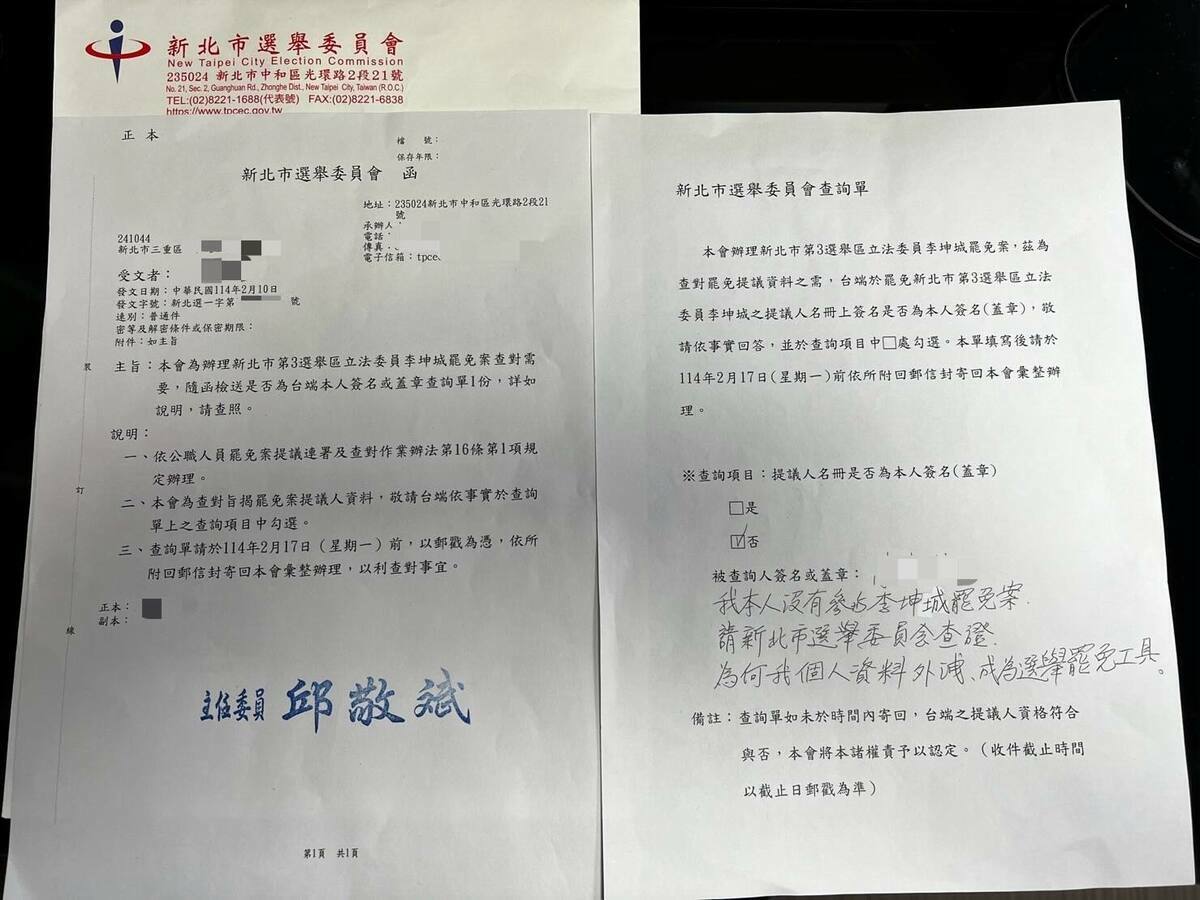 新北市選舉委員會
New Taipei City Election Commission
235024 新北市中和區光環路2段21號
No. 21, Sec. 2, Guanghuan Rd., Zhonghe Dist., New Taipei City, Taiwan (R.O.C.)
TEL:(02)8221-1688(代表號) FAX:(02)8221-6838
https://www.tpcec.gov.tw
正本
檔 號：
保存年限：
新北市選舉委員會 函
地址：235024新北市中和區光環路2段21
號
承辦人
電話
傳真：
電子信箱：tpce
241044
新北市三重區
受文者：
發文日期：中華民國114年2月10日
發文字號：新北選一字第 號
速別：普通件
密等及解密條件或保密期限：
附件：如主旨
主旨：本會為辦理新北市第3選舉區立法委員李坤城罷免案查對需
要，隨函檢送是否為台端本人簽名或蓋章查詢單1份，詳如
說明，請查照。
說明：
一、依公職人員罷免案提議連署及查對作業辦法第16條第1項規
定辦理。
二、本會為查對旨揭罷免案提議人資料，敬請台端依事實於查詢
單上之查詢項目中勾選。
三、查詢單請於114年2月17日（星期一）前，以郵戳為憑，依所
附回郵信封寄回本會彙整辦理，以利查對事宜。
正本：
副本：
裝
訂
線
主任委員 邱敬斌
第1頁 共1頁
新北市選舉委員會查詢單
本會辦理新北市第3選舉區立法委員李坤城罷免案，茲為
查對罷免提議資料之需，台端於罷免新北市第3選舉區立法
委員李坤城之提議人名冊上簽名是否為本人簽名(蓋章)，敬
請依事實回答，並於查詢項目中□處勾選。本單填寫後請於
114年2月17日(星期一)前依所附回郵信封寄回本會彙整辦
理。
※查詢項目：提議人名冊是否為本人簽名(蓋章)
□是
☑否
被查詢人簽名或蓋章：
我本人沒有參與李坤城罷免案.
請新北市選舉委員会查證.
為何我個人資料外洩、成為選舉罷免工具。
備註：查詢單如未於時間內寄回，台端之提議人資格符合
與否，本會將本諸權責予以認定。（收件截止時間
以截止日郵戳為準）